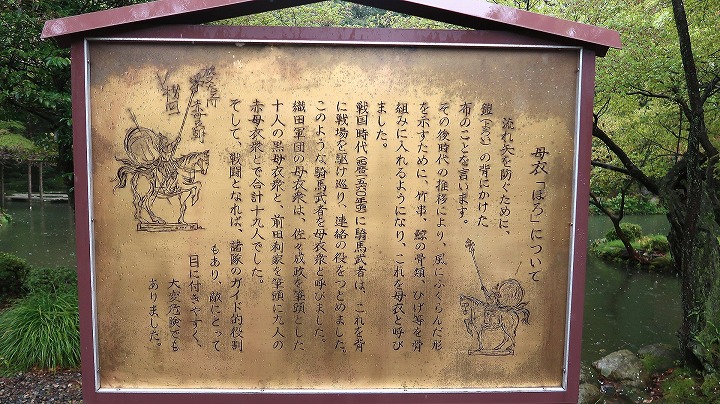 母衣「ほろ」について
流れ矢を防ぐために、
鎧(よろい)の背にかけた
布のことを言います。
その後時代の推移により、風にふくらんだ形
を示すために、竹串、鯨の骨類、ひげ等を骨
組みに入れるようになり、これを母衣と呼び
ました。
戦国時代(西暦一五六〇年頃)に騎馬武者は、これを背
に戦場を駆け巡り、連絡の役をつとめました。
このような騎馬武者を母衣衆と呼びました。
織田軍団の母衣衆は、佐々成政を筆頭とした
十人の黒母衣衆と、前田利家を筆頭に九人の
赤母衣衆とで合計十九人でした。
そして、戦闘となれば、諸隊のガイド的役割
もあり、敵にとって
目に付きやすく、
大変危険でも
ありました。